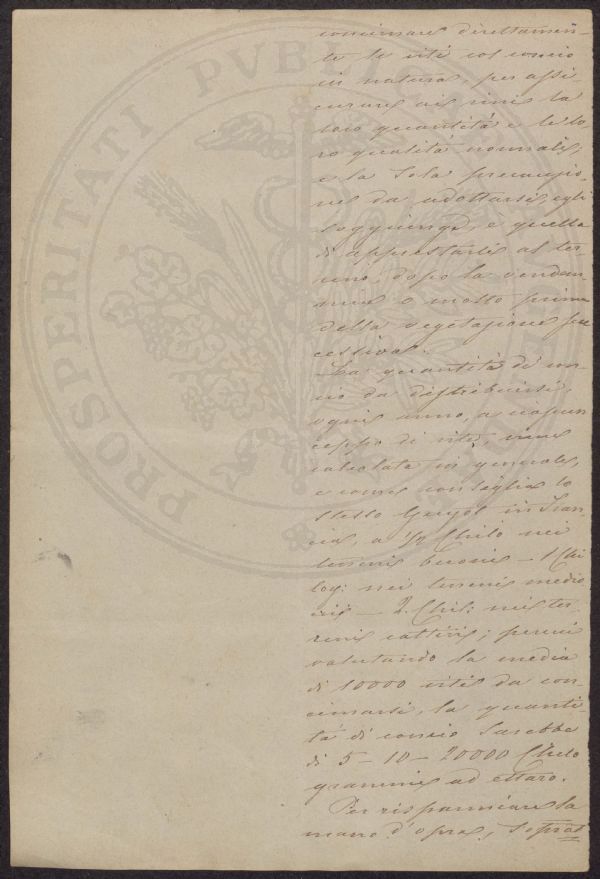 concimare direttamen-
te le viti col concio
in natura, per assi-
curare ai vini la
loro quantità e le lo
ro qualità normali;
e la sola precauzio-
ne da adottarsi, egli
soggiunge, e quella
di apprestarli al ter-
reno dopo la vendem-
mia o molto prima
della vegetazione suc
cessiva.
La quantità di con-
cio da distribuirsi,
ogni anno, a ciascun
ceppo di vite, viene
calcolata in generale,
e come consiglia lo
stesso Guyot in Fran-
cia, a 1/2 Chilo nei
terreni buoni - 1 Chi
log: nei terreni medio
cri - 2. Chil: nei ter-
reni cattivi; percui
valutando la media
di 10000 viti da con-
cimarsi, la quanti-
tà di concio sarebbe
di 5 - 10 - 20000 Chilo
grammi ad ettaro.
Per risparmiare la
mano d'opra, soprat
PROSPERITATI PVBLICAE